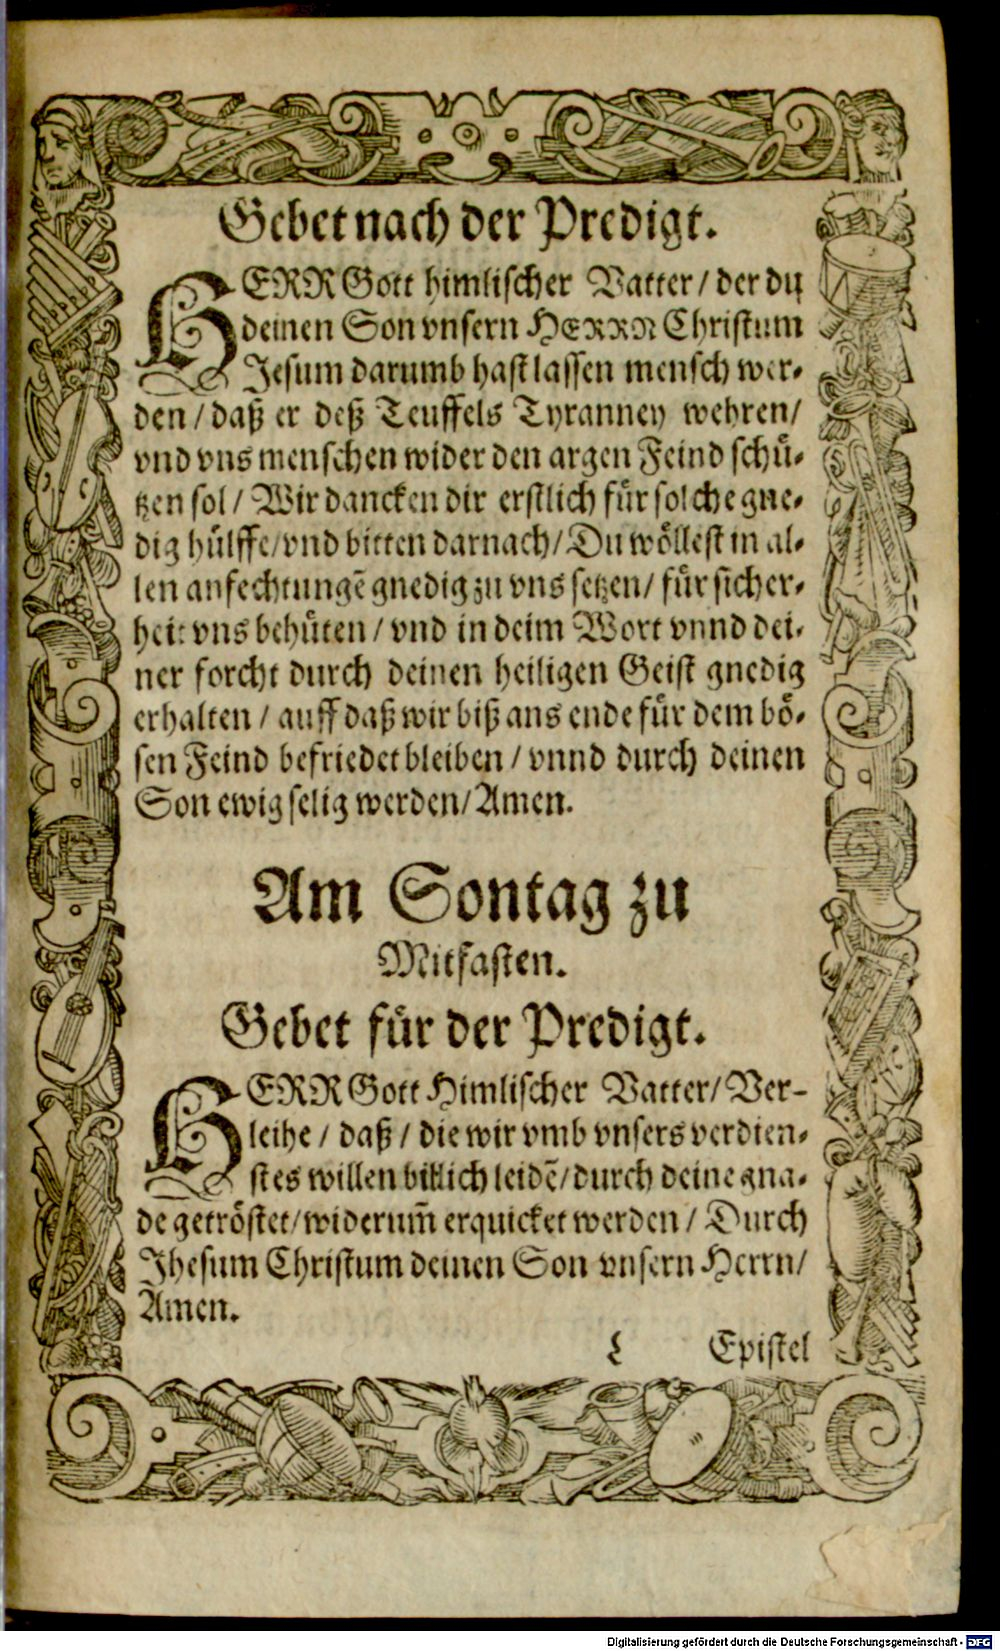 Gebet nach der Predigt.
HERR Gott himlischer Vatter/ der du
deinen Son vnsern HERRN Christum
Jesum darumb hast lassen mensch wer-
den/ daß er deß Teuffels Tyranney wehren/
vnd vns menschen wider den argen Feind schü-
tzen sol/ Wir dancken dir erstlich für solche gne-
dig hülffe/ vnd bitten darnach/ Du wöllest in al-
len anfechtungẽ gnedig zu vns setzen/ für sicher-
heit vns behüten/ vnd in deim Wort vnnd dei-
ner forcht durch deinen heiligen Geist gnedig
erhalten/ auff daß wir biß ans ende für dem bö-
sen Feind befriedet bleiben/ vnnd durch deinen
Son ewig selig werden/ Amen.
Am Sontag zu
Mitfasten.
Gebet für der Predigt.
HERR Gott Himlischer Vatter/ Ver-
leihe/ daß/ die wir vmb vnsers verdien-
stes willen billich leidẽ/ durch deine gna-
de getröstet/ widerum̃ erquicket werden/ Durch
Jhesum Christum deinen Son vnsern Herrn/
Amen.
Epistel
Digitalisierung gefördert durch die Deutsche Forschungsgemeinschaft - DFG